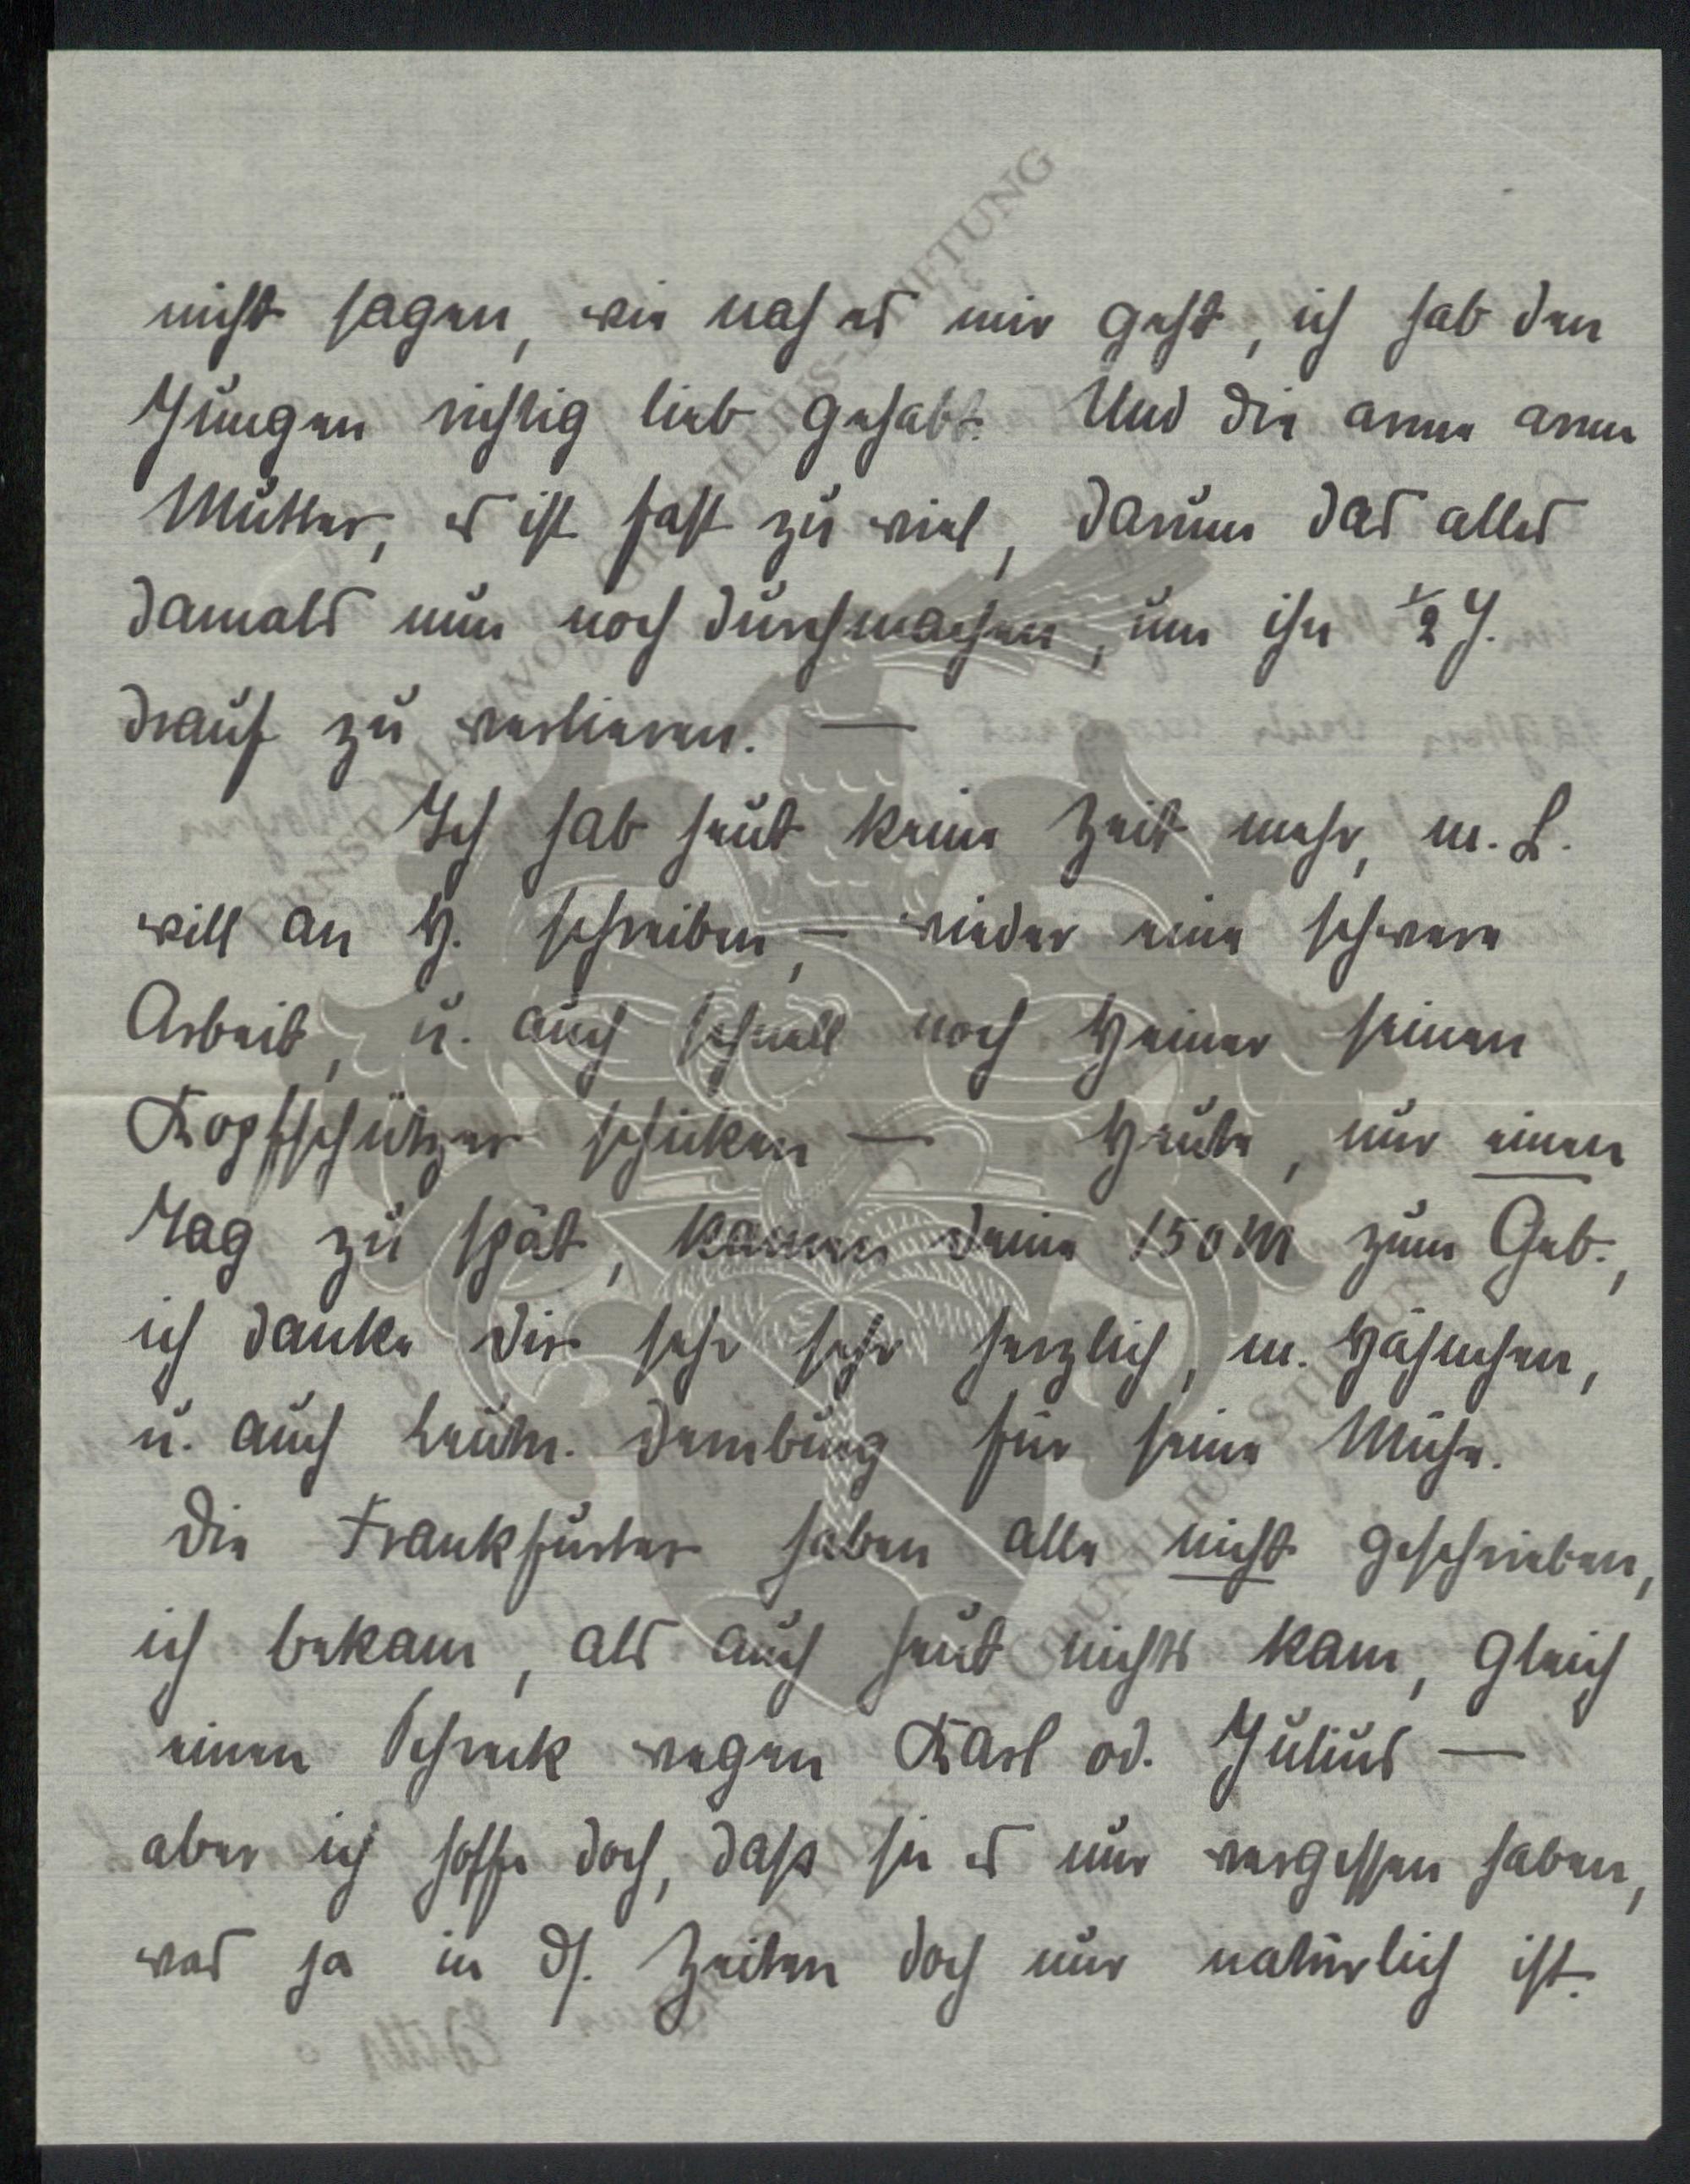 nicht sagen, wie nah es mir geht, ich hab den
Jungen richtig lieb gehabt. Und die arme arme
Mutter, es ist fast zu viel, darum das alles
damals nun noch durchmachen, um ihn 1/2 J.
drauf zu verlieren. —
Ich hab heut keine Zeit mehr, m. L.
will an H. schreiben, – wieder eine schwere
Arbeit, u. auch schnell noch Heiner seinen
Kopfschützer schicken — Heute, nur einen
Tag zu spät, kamen deine 150 M zum Geb.,
ich danke dir sehr sehr herzlich, m. Hähnchen,
u. auch Leutn. Demburg für seine Mühe.
Die Frankfurter haben alle nicht geschrieben,
ich bekam, als auch heut nichts kam, gleich
einen Schreck wegen Karl od. Julius —
aber ich hoffe doch, dass sie es nur vergessen haben,
was ja in ds. Zeiten doch nur natürlich ist.
ERNST MAX VON GRUNELIUS-STIFTUNG
ERNST MAX VON GRUNELIUS-STIFTUNG